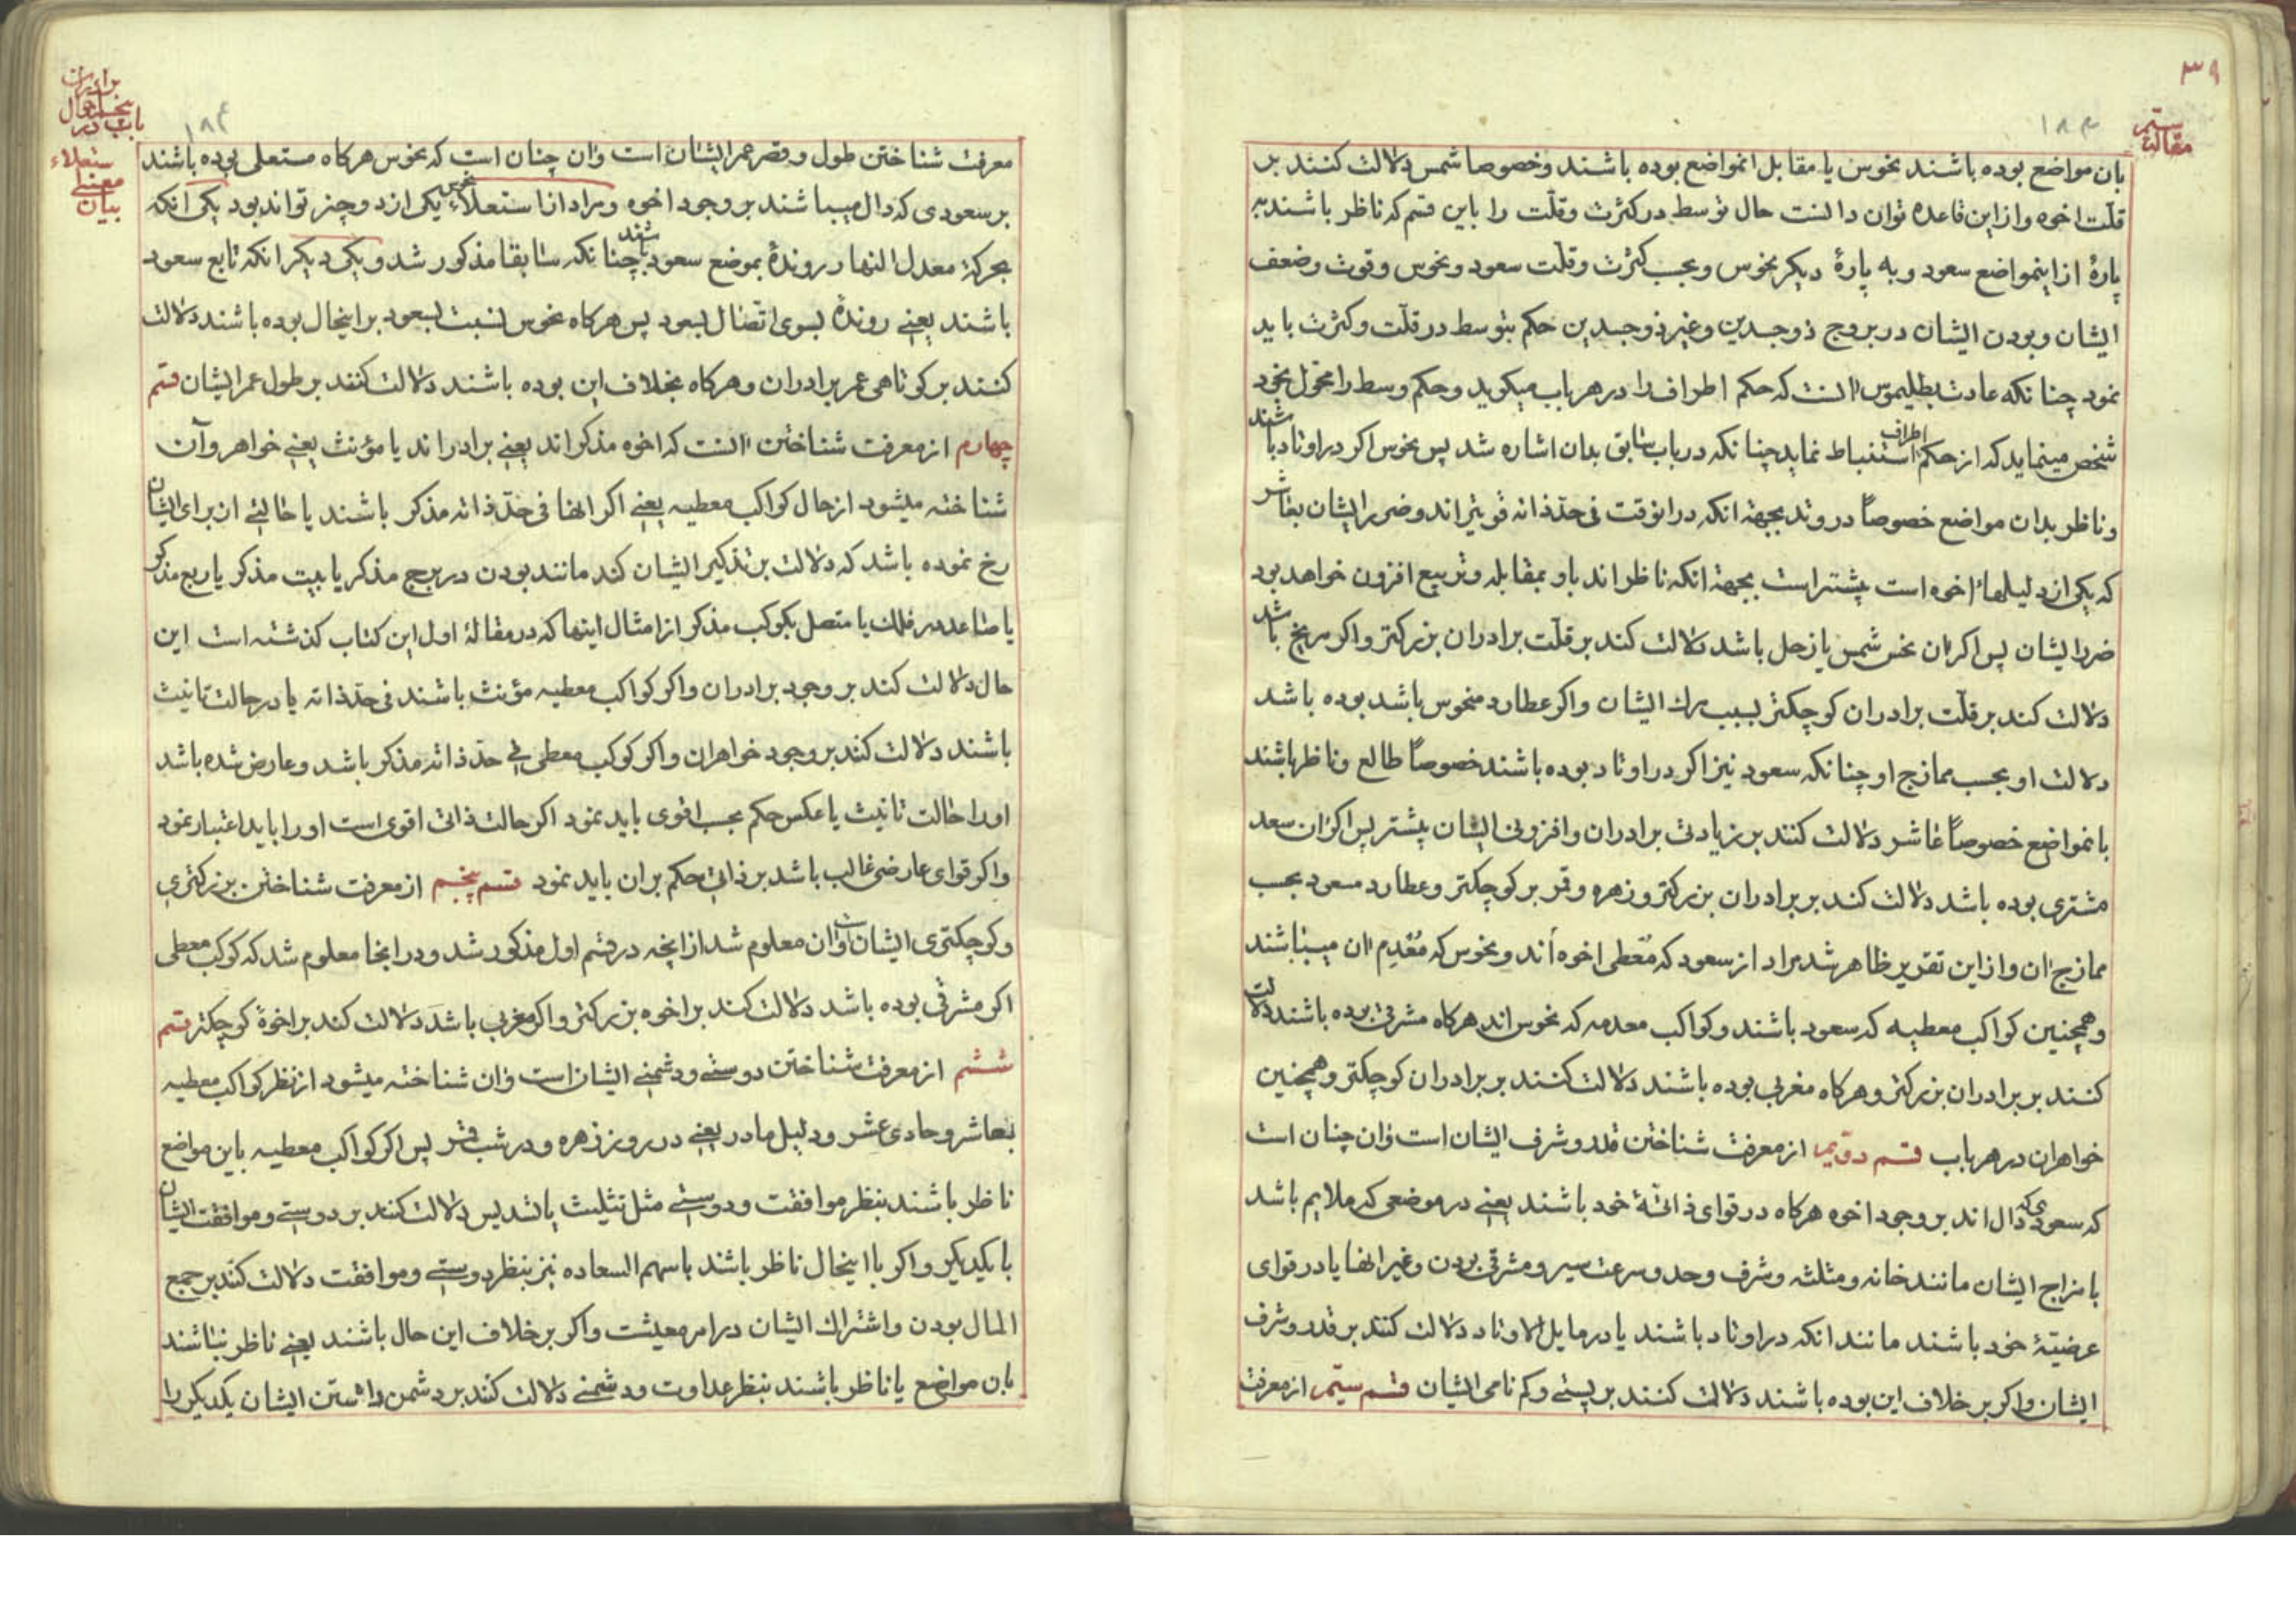 ۳۹
۱۸۳
مقالت
سیم
بان مواضع بوده باشند نحوس یا مقابل انمواضع بوده باشند وخصوصا شمس دلالت کنند بر
قلّت اخوه وازاین قاعده توان دانست حال توسط در کثرت وقلّت را باین قسم که ناظر باشند به
پارهٔ ازاینمواضع سعود و به پارهٔ دیکر نحوس وبحسب کثرت وقلّت سعود ونحوس وقوت وضعف
ایشان وبودن ایشان در بروج ذوجسدین وغیر ذوجسدین حکم بتوسط در قلّت وکثرت باید
نمود چنانکه عادت بطلیموس انست که حکم اطراف را در هر باب میکوید وحکم وسط را محوّل بخود
شخص مینماید که از حکم اطراف استنباط نماید چنانکه در باب سابق بدان اشاره شد پس نحوس اکر در اوتاد باشند
وناظر بدان مواضع خصوصاً در وتد بجهة انکه درانوقت فی حدّ ذاته قویتراند وضرر ایشان بعاشر
که یکی از دلیلهاء اخوه است بیشتر است بجهة انکه ناظر اند باو بمقابله وتربیع افزون خواهد بود
ضرر ایشان پس اکر ان نحس شمس یا زحل باشد دلالت کند بر قلّت برادران بزرکتر واکر مریخ باشد
دلالت کند بر قلّت برادران کوچکتر بسبب مرك ایشان واکر عطارد منحوس باشد بوده باشد
دلالت او بحسب ممازج او چنانکه سعود نیز اکر در اوتاد بوده باشند خصوصاً طالع وناظر باشند
بانمواضع خصوصاً عاشر دلالت کنند بر زیادتی برادران وافزونی ایشان بیشتر پس اکر ان سعد
مشتری بوده باشد دلالت کند بر برادران بزرکتر وزهره وقمر بر کوچکتر وعطارد مسعود بحسب
ممازج ان وازاین تقریر ظاهر شد مراد از سعود که مُعْطی اخوه اَند ونحوس که مُعْدِم ان میباشند
وهمچنین کواکب معطیه که سعود باشند وکواکب معدمه که نحوس اند هرکاه مشرقی بوده باشند دلالت
کنند بر برادران بزرکتر وهرکاه مغربی بوده باشند دلالت کنند بر برادران کوچکتر وهمچنین
خواهران در هر باب قسم دوّیم از معرفت شناختن قدر وشرف ایشان است وان چنان است
که سعودی که دال اند بر وجود اخوه هرکاه در قوای ذاتیّهٔ خود باشند یعنی در موضعی که ملایم باشد
بامزاج ایشان مانند خانه ومثلثه وشرف وحد وسرعت سیر ومشرقی بودن وغیر انها یا در قوای
عرضیّهٔ خود باشند مانند انکه در اوتاد باشند یا در مایل الاوتاد دلالت کنند بر قدر وشرف
ایشان واکر بر خلاف این بوده باشند دلالت کنند بر پستی وکم نامی ایشان قسم سیّم از معرفت
۱۸۴
باب در
احوال
برادران
بیان
معنی
استعلاء
معرفت شناختن طول وقصر عمر ایشان است وان چنان است که نحوس هرکاه مستعلی بوده باشند
بر سعودی که دال میباشند بر وجود اخوه ومراد از استعلاء نحس یکی از دو چیز تواند بود یکی انکه
بحرکة معدل النهار روندهٔ بموضع سعود باشند چنانکه سابقا مذکور شد ویکی دیکر انکه تابع سعود
باشند یعنی روندهٔ بسوی اتصال بسعود پس هرکاه نحوس نسبت بسعود براینحال بوده باشند دلالت
کنند بر کوتاهی عمر برادران وهرکاه بخلاف این بوده باشند دلالت کنند بر طول عمر ایشان قسم
چهارم از معرفت شناختن انست که اخوه مذکر اند یعنی برادر اند یا مؤنث یعنی خواهر وآن
شناخته میشود از حال کواکب معطیه یعنی اکر انها فی حدّ ذاته مذکر باشند یا حالتی از برای ایشان
رخ نموده باشد که دلالت بر تذکیر ایشان کند مانند بودن در برج مذکر یا بیت مذکر یا ربع مذکر
یا صاعد در فلك یا متصل بکوکب مذکر از امثال اینها که در مقالهٔ اول این کتاب کذشته است این
حال دلالت کند بر وجود برادران واکر کواکب معطیه مؤنث باشند فی حدّ ذاته یا در حالت تانیث
باشند دلالت کنند بر وجود خواهران واکر کوکب معطی فی حدّ ذاته مذکر باشد وعارض شده باشد
اورا حالت تانیث یا عکس حکم بحسب اقوی باید نمود اکر حالت ذاتی اقوی است اورا باید اعتبار نمود
واکر قوای عارضی غالب باشد بر ذاتی حکم بران باید نمود قسم پنجم از معرفت شناختن بزرکتری
وکوچکتری ایشان است وان معلوم شد از انچه در قسم اول مذکور شد ودرانجا معلوم شد که کوکب معطی
اکر مشرقی بوده باشد دلالت کند بر اخوه بزرکتر واکر مغربی باشد دلالت کند بر اخوهٔ کوچکتر قسم
ششم از معرفت شناختن دوستی ودشمنی ایشان است وان شناخته میشود از نظر کواکب معطیه
بعاشر وحادی عشر ودلیل مادر یعنی در روز زهره ودر شب قمر پس اکر کواکب معطیه باین مواضع
ناظر باشند بنظر موافقت ودوستی مثل تثلیث یا تسدیس دلالت کنند بر دوستی وموافقت ایشان
با یکدیکر واکر با اینحال ناظر باشند باسهم السعاده نیز بنظر دوستی وموافقت دلالت کنند بر جمع
المال بودن واشتراك ایشان در امر معیشت واکر بر خلاف این حال باشند یعنی ناظر نباشند
بان مواضع یا ناظر باشند بنظر عداوت ودشمنی دلالت کند بر دشمن داشتن ایشان یکدیکر را